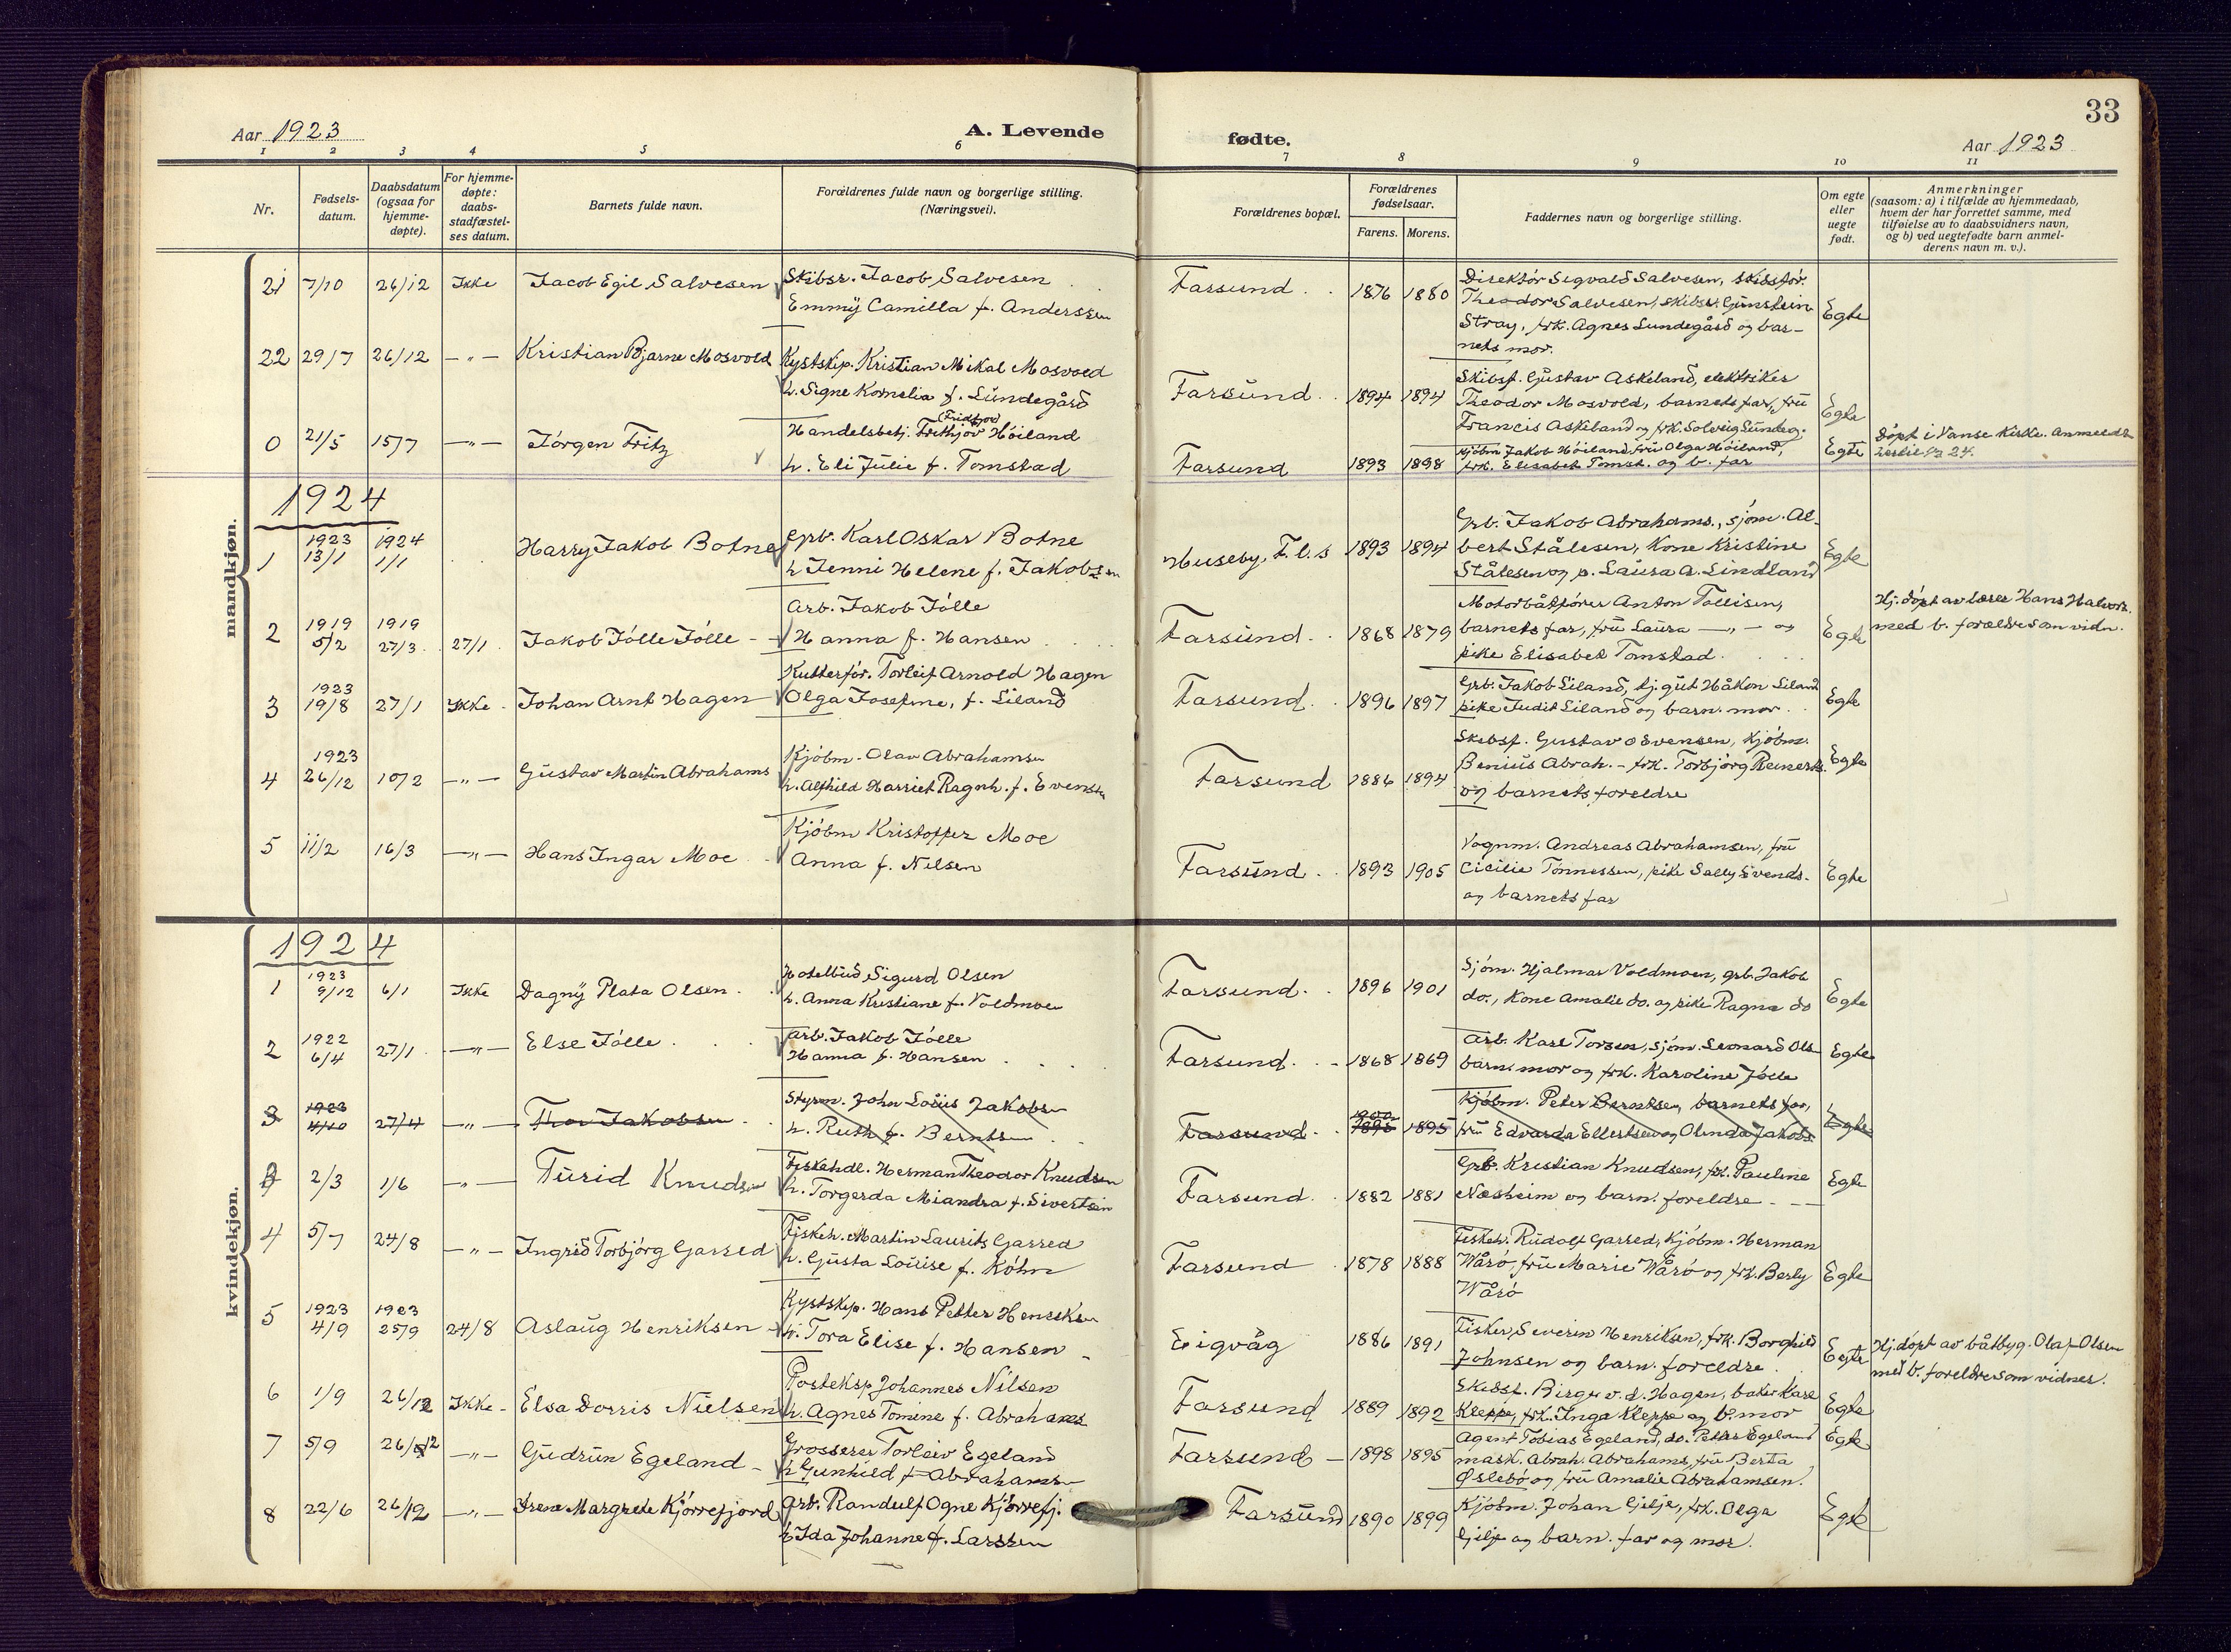 33
Aar 1923
A. Levende
fødte.
Aar 1923
1 2 3 4 5 6 7 8 9 10 11
Nr.
Fødsels-
datum.
Daabsdatum
(ogsaa for
hjemme-
døpte).
For hjemme-
døpte:
daabs-
stadfæstel-
ses datum.
Barnets fulde navn.
Forældrenes fulde navn og borgerlige stilling.
(Næringsvei).
Forældrenes bopæl.
Forældrenes
fødselsaar.
Farens. Morens.
Faddernes navn og borgerlige stilling.
Om egte
eller
uegte
født.
Anmerkninger
(saasom: a) i tilfælde av hjemmedaab,
hvem der har forrettet samme, med
tilføielse av to daabsvidners navn,
og b) ved uegtefødte barn anmel-
derens navn m. v.).
mandkjøn.
21 7/10 26/12 Ikke Jacob Egil Salvesen
Skibsr. Jacob Salvesen
Emmy Camilla f. Anderssen
Farsund 1876 1880
Direktör Sigvald Salvesen, skibsför.
Theodor Salvesen, skibsr. Gunstein
Stray, frk. Agnes Lundegård og bar-
nets mor.
Egte
22 29/7 26/12 -"- Kristian Bjarne Mosvold
Kystskip. Kristian Mikal Mosvold
h. Signe Kornelia f. Lundegård
Farsund 1894 1894
Skibsf. Gustav Askeland, elektriker
Theodor Mosvold, barnets far, fru
Francis Askeland og frk. Solveig Lundeg.
Egte
0 21/5 15/7 -"- Jörgen Fritz
(Fridtjov)
Handelsbetj. Frithjov Höiland
h. Eli Julie f. Tomstad
Farsund 1893 1898
Kjöbm Jakob Höiland, fru Olga Höiland,
frk. Elisabet Tomst. og b. far
Egte
Döpt i Vanse Kirke. Anmeldt
1924
1 1923 13/1 1924 1/1 Harry Jakob Botne
Grb. Karl Oskar Botne
h Jenni Helene f. Jakobsen
Huseby, F.l.s 1893 1894
Grb. Jakob Abrahams., sjöm. Al-
bert Stålesen, Kone Kristine
Stålesen og p. Laura A. Lindland
Egte
2 1919 5/2 1919 27/3 27/1 Jakob Jölle Jölle
Arb. Jakob Jölle
Hanna f. Hansen
Farsund 1868 1879
Motorbåtförer Anton Tollisen,
barnets far, fru Laura -"- og
pike Elisabet Tomstad
Egte
Hj. döpt av lærer Hans Halvors.
med b. forældre som vidn.
3 1923 19/8 27/1 Ikke Johan Arnt Hagen
Kutterför. Torleif Arnold Hagen
Olga Josefine, f. Liland
Farsund 1896 1897
Grb. Jakob Liland, tj. gut Håkon Liland
pike Judit Liland og barn. mor
Egte
4 1923 26/12 10/2 -"- Gustav Martin Abrahams
Kjöbm. Olav Abrahamsen
h. Alfhild Harriet Ragnh. f. Evensen
Farsund 1886 1894
Skibsf. Gustav O Evensen, Kjöbm.
Benius Abrah. - frk. Torbjörg Reinerts.
og barnets foreldre
Egte
5 11/2 16/3 -"- Hans Ingar Moe
Kjöbm Kristoffer Moe
Anna f. Nilsen
Farsund 1893 1905
Vognm. Andreas Abrahamsen, fru
Cicilie Tönnessen, pike Sally Svends.
og barnets far
Egte
kvindekjøn.
1924
1 1923 9/12 6/1 Ikke Dagny Plata Olsen
Hotelbud Sigurd Olsen
h. Anna Kristiane f. Voldmoen
Farsund 1896 1901
Sjöm. Hjalmar Voldmoen, grb. Jakob
do., Kone Amalie do. og pike Ragna do
Egte
2 1922 6/4 27/1 -"- Else Jölle
Arb. Jakob Jölle
Hanna f. Hansen
Farsund 1868 1869
Arb. Karl Torsen, sjöm. Leonard Ols
barn. mor og frk. Karoline Jölle
Egte
3 1923 4/10 27/4 -"- Thor Jakobsen
Styrm. John Louis Jakobsen
h. Ruth f. Berntsen
Farsund 1895 1895
Kjöbm. Peter Berntsen, barnets far,
fru Edvarda Ellertsen og Olinda Jakobs.
Egte
2/3 1/6 -"- Turid Knudsen
Fiskehdl. Herman Theodor Knudsen
h. Torgerda Miandra f. Sivertsen
Farsund 1882 1881
Grb. Kristian Knudsen, frk. Pauline
Næsheim og barn. foreldre
Egte
4 5/7 24/8 -"- Ingrid Torbjörg Garred
Fiskeh. Martin Laurits Garred
h. Gusta Louise f. Köhn
Farsund 1878 1888
Fiskeh. Rudolf Garred, Kjöbm. Herman
Wårö, fru Marie Wårö og frk. Berly
Wårö
Egte
5 1923 4/9 1923 25/9 24/8 Aslaug Henriksen
Kystskip. Hans Petter Henriksen
h. Tora Elise f. Hansen
Eigvåg 1886 1891
Fisker Severin Henriksen, frk. Borghild
Johnsen og barn. foreldre
Egte
Hj. döpt av båtbyg. Olaf Olsen
med b. foreldre som vidner.
6 1/9 26/12 Ikke Elsa Dorris Nielsen
Posteksp. Johannes Nilsen
h. Agnes Tomine f. Abrahams
Farsund 1889 1892
Skibsf. Birger v.d. Hagen, baker Karl
Kleppe, frk. Inga Kleppe og b. mor
Egte
7 5/9 26/12 -"- Gudrun Egeland
Grosserer Torleiv Egeland
h Gunhild f Abrahamsen
Farsund 1898 1895
Agent Tobias Egeland, do. Petter Egeland
mask. Abrah. Abrahams, fru Berta
Öslebö og fru Amalie Abrahamsen.
Egte
8 22/6 26/12 -"- Irene Margrete Kjörrefjord
Arb. Randulf Ogne Kjörrefj.
h Ida Johanne f. Larssen
Farsund 1890 1899
Kjöbm. Johan Gjelje, frk. Olga
Gjelje og barn. far og mor.
Egte